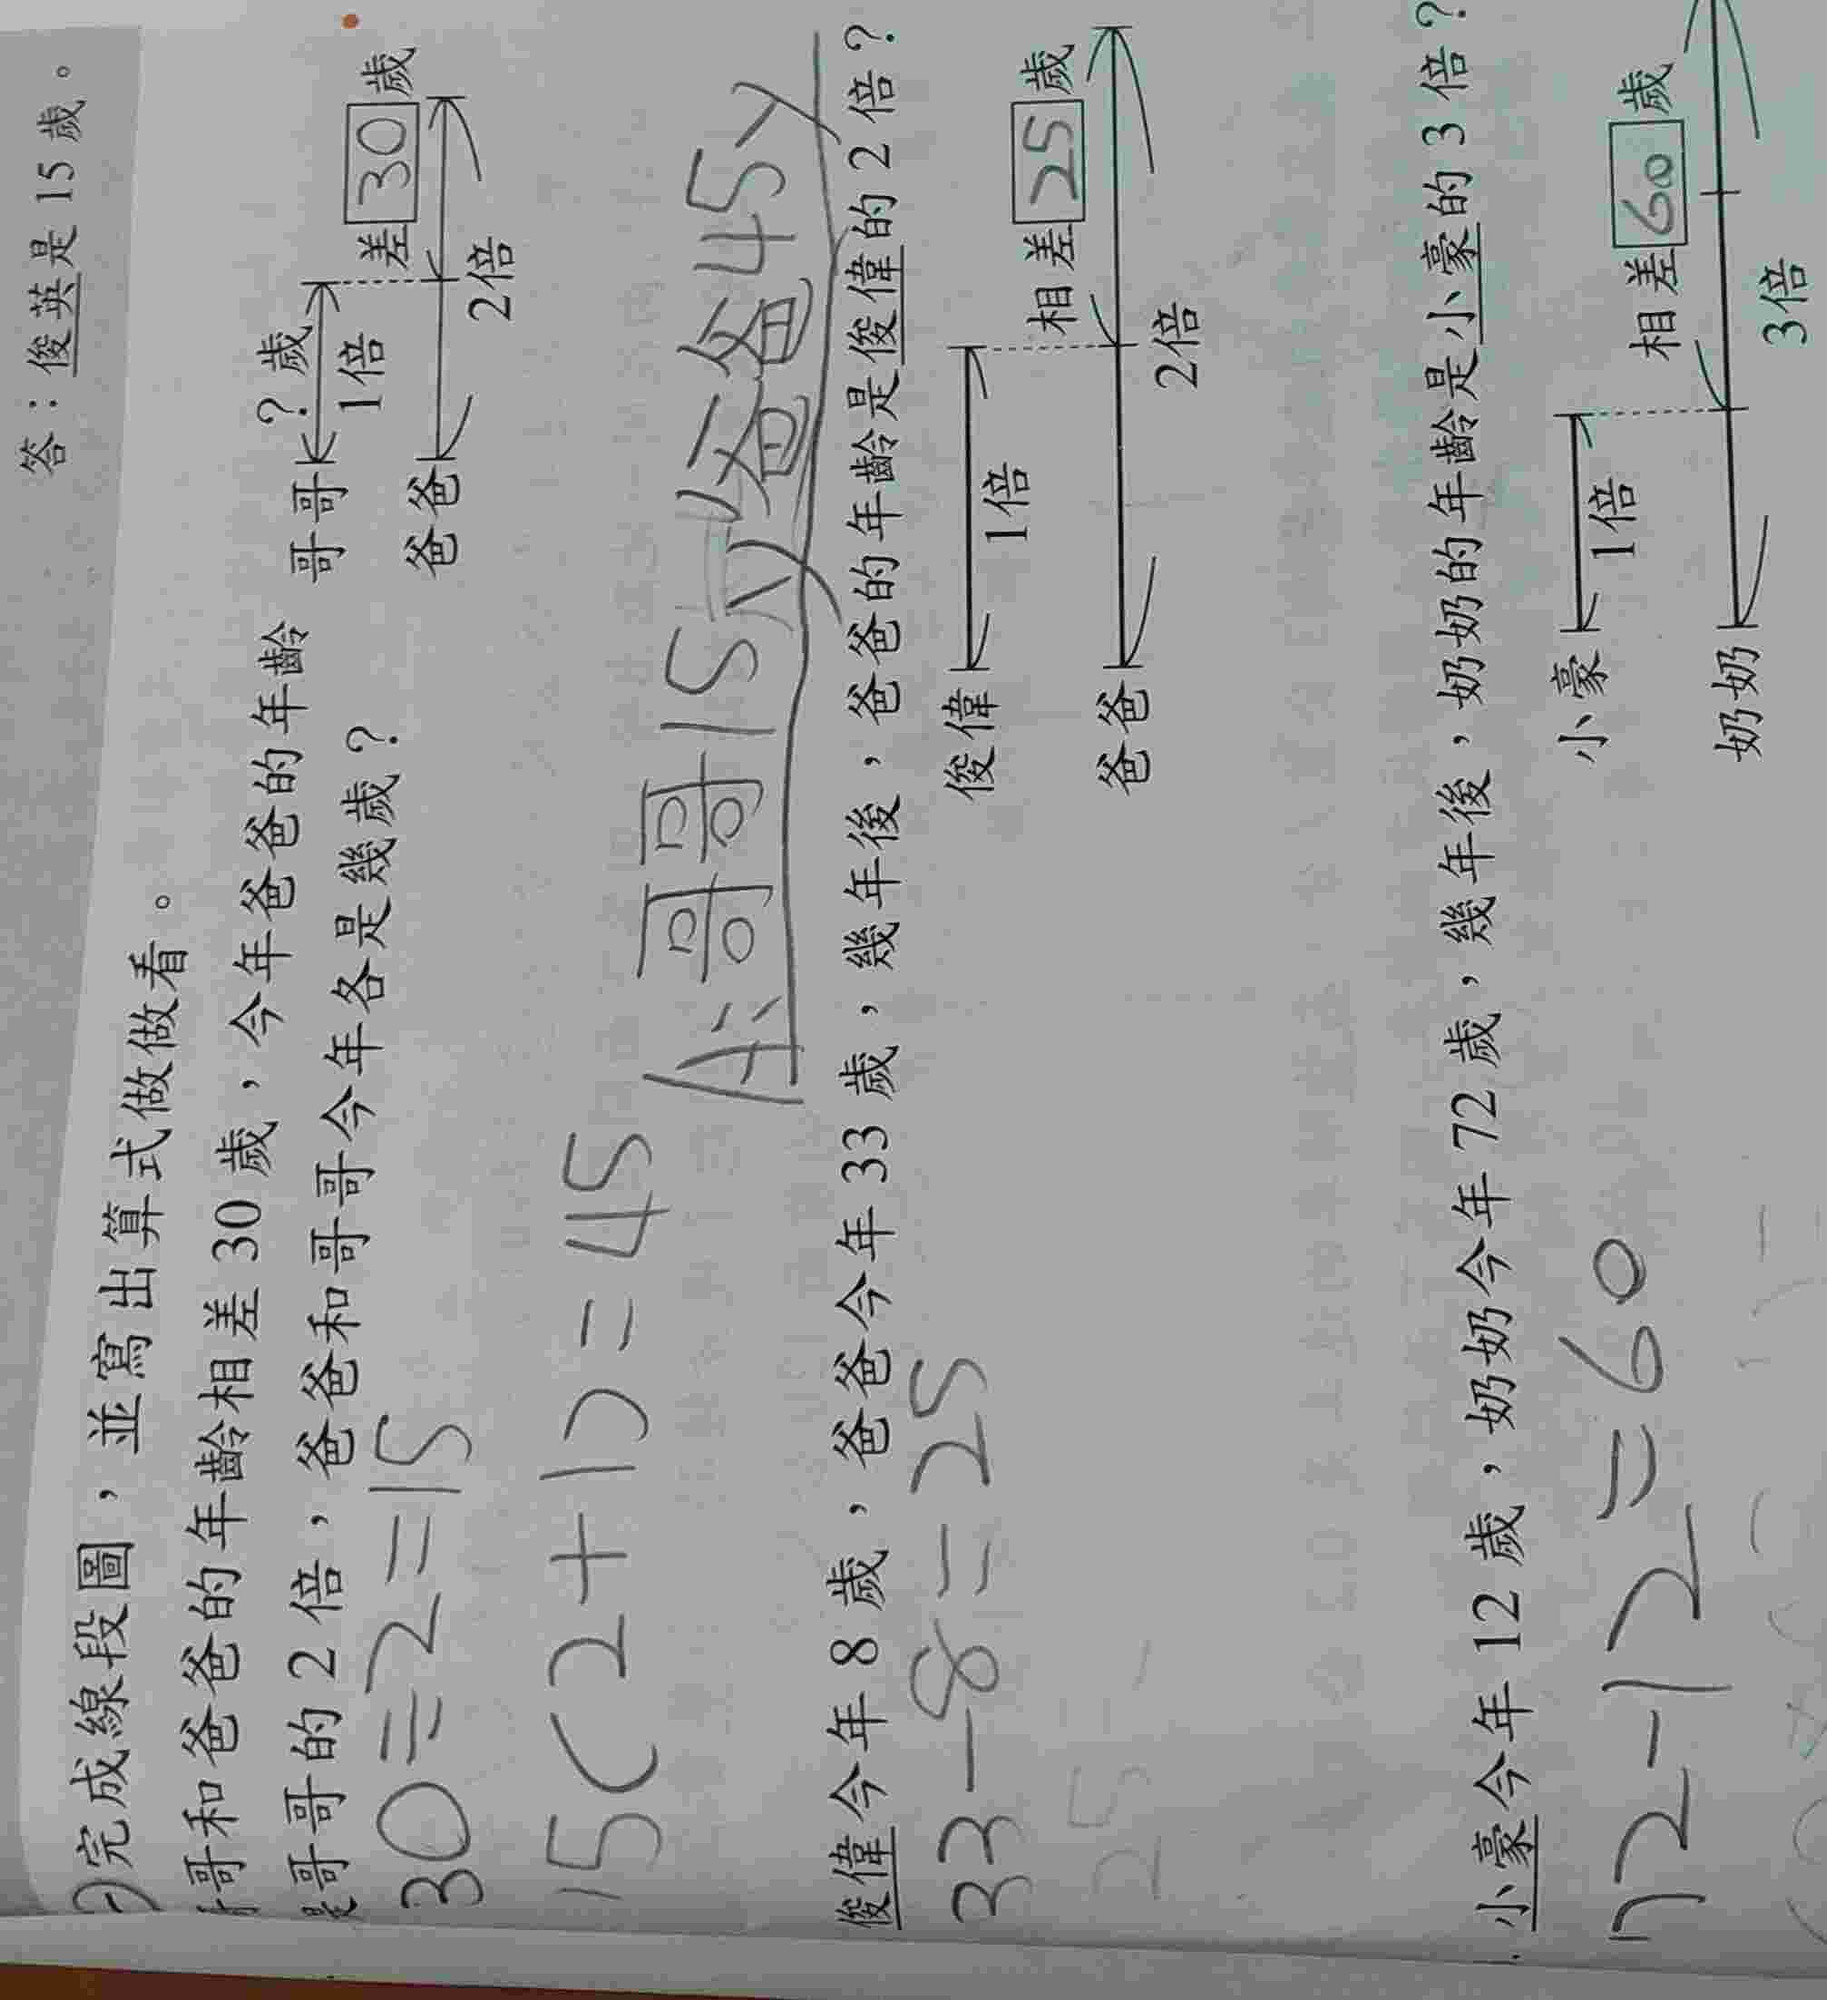 答：俊英是 15 歲。
完成線段圖，並寫出算式做做看。
哥和爸爸的年齡相差 30 歲，今年爸爸的年齡
哥哥的 2 倍，爸爸和哥哥今年各是幾歲？
哥哥 ? 歲
1倍
差 30 歲
爸爸
2倍
30÷2=15
15(2+1)=45
A：哥哥15y 爸爸45y
俊偉今年 8 歲，爸爸今年 33 歲，幾年後，爸爸的年齡是俊偉的 2 倍？
33-8=25
25
俊偉
1倍
相差 25 歲
爸爸
2倍
小豪今年 12 歲，奶奶今年 72 歲，幾年後，奶奶的年齡是小豪的 3 倍？
72-12=60
小豪
1倍
相差 60 歲
奶奶
3倍